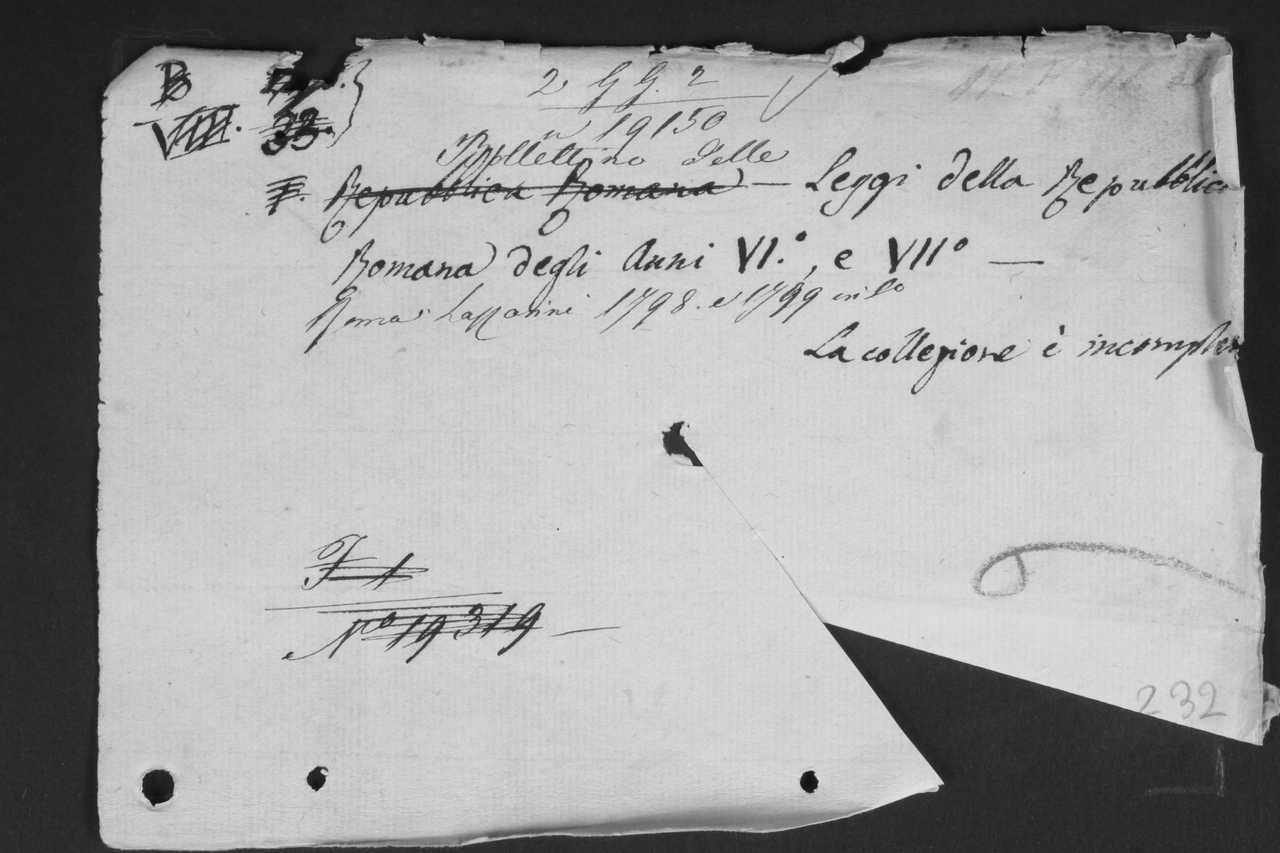 B
VIII. 33.
2 GG. 2
n 19150
Bollettino delle
F. Repubblica Romana — Leggi della Repubblica
Romana degli Anni VI.º, e VIIº —
Roma Lazzarini 1798. e 1799 in
La collezione è incompleta
F 1
Nº 19319 —
232